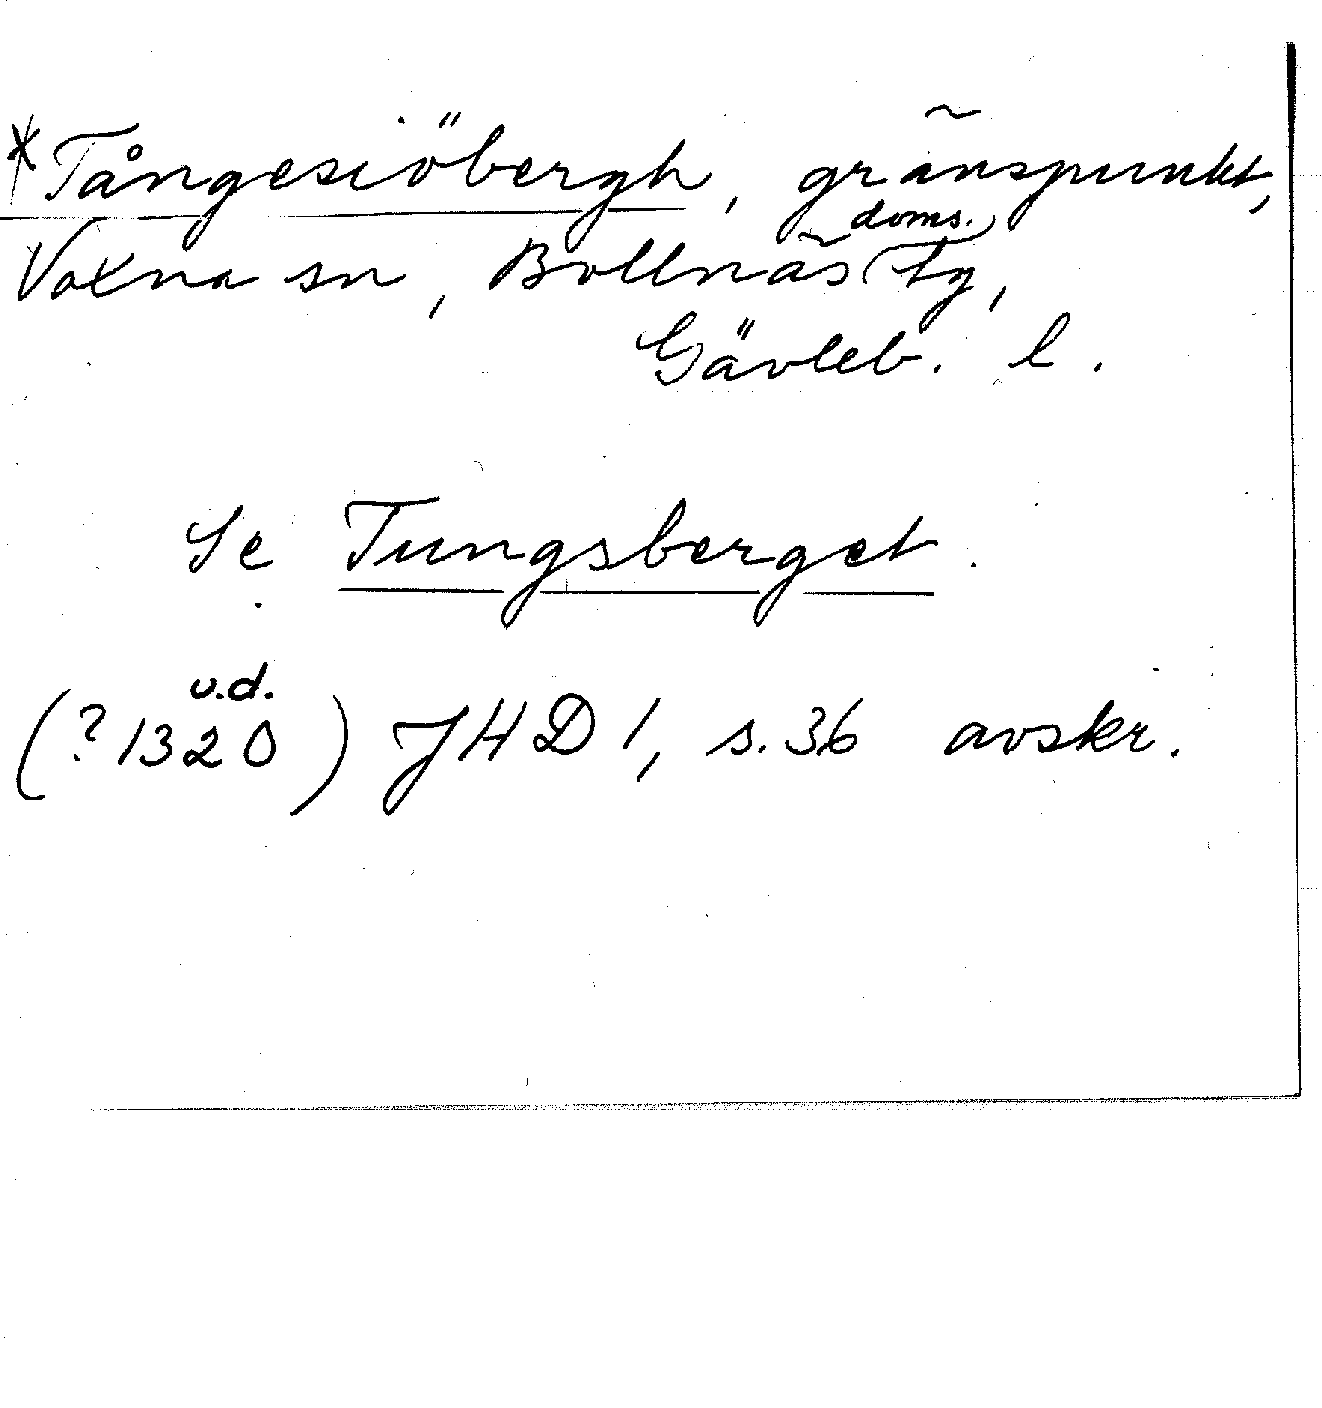 *Tångesiöbergh, gränspunkt,
Voxna sn, Bollnäs doms. fg,
Gävleb. l.
Se Tungsberget.
(?1320 u.d.) JHD 1, s. 36 avskr.